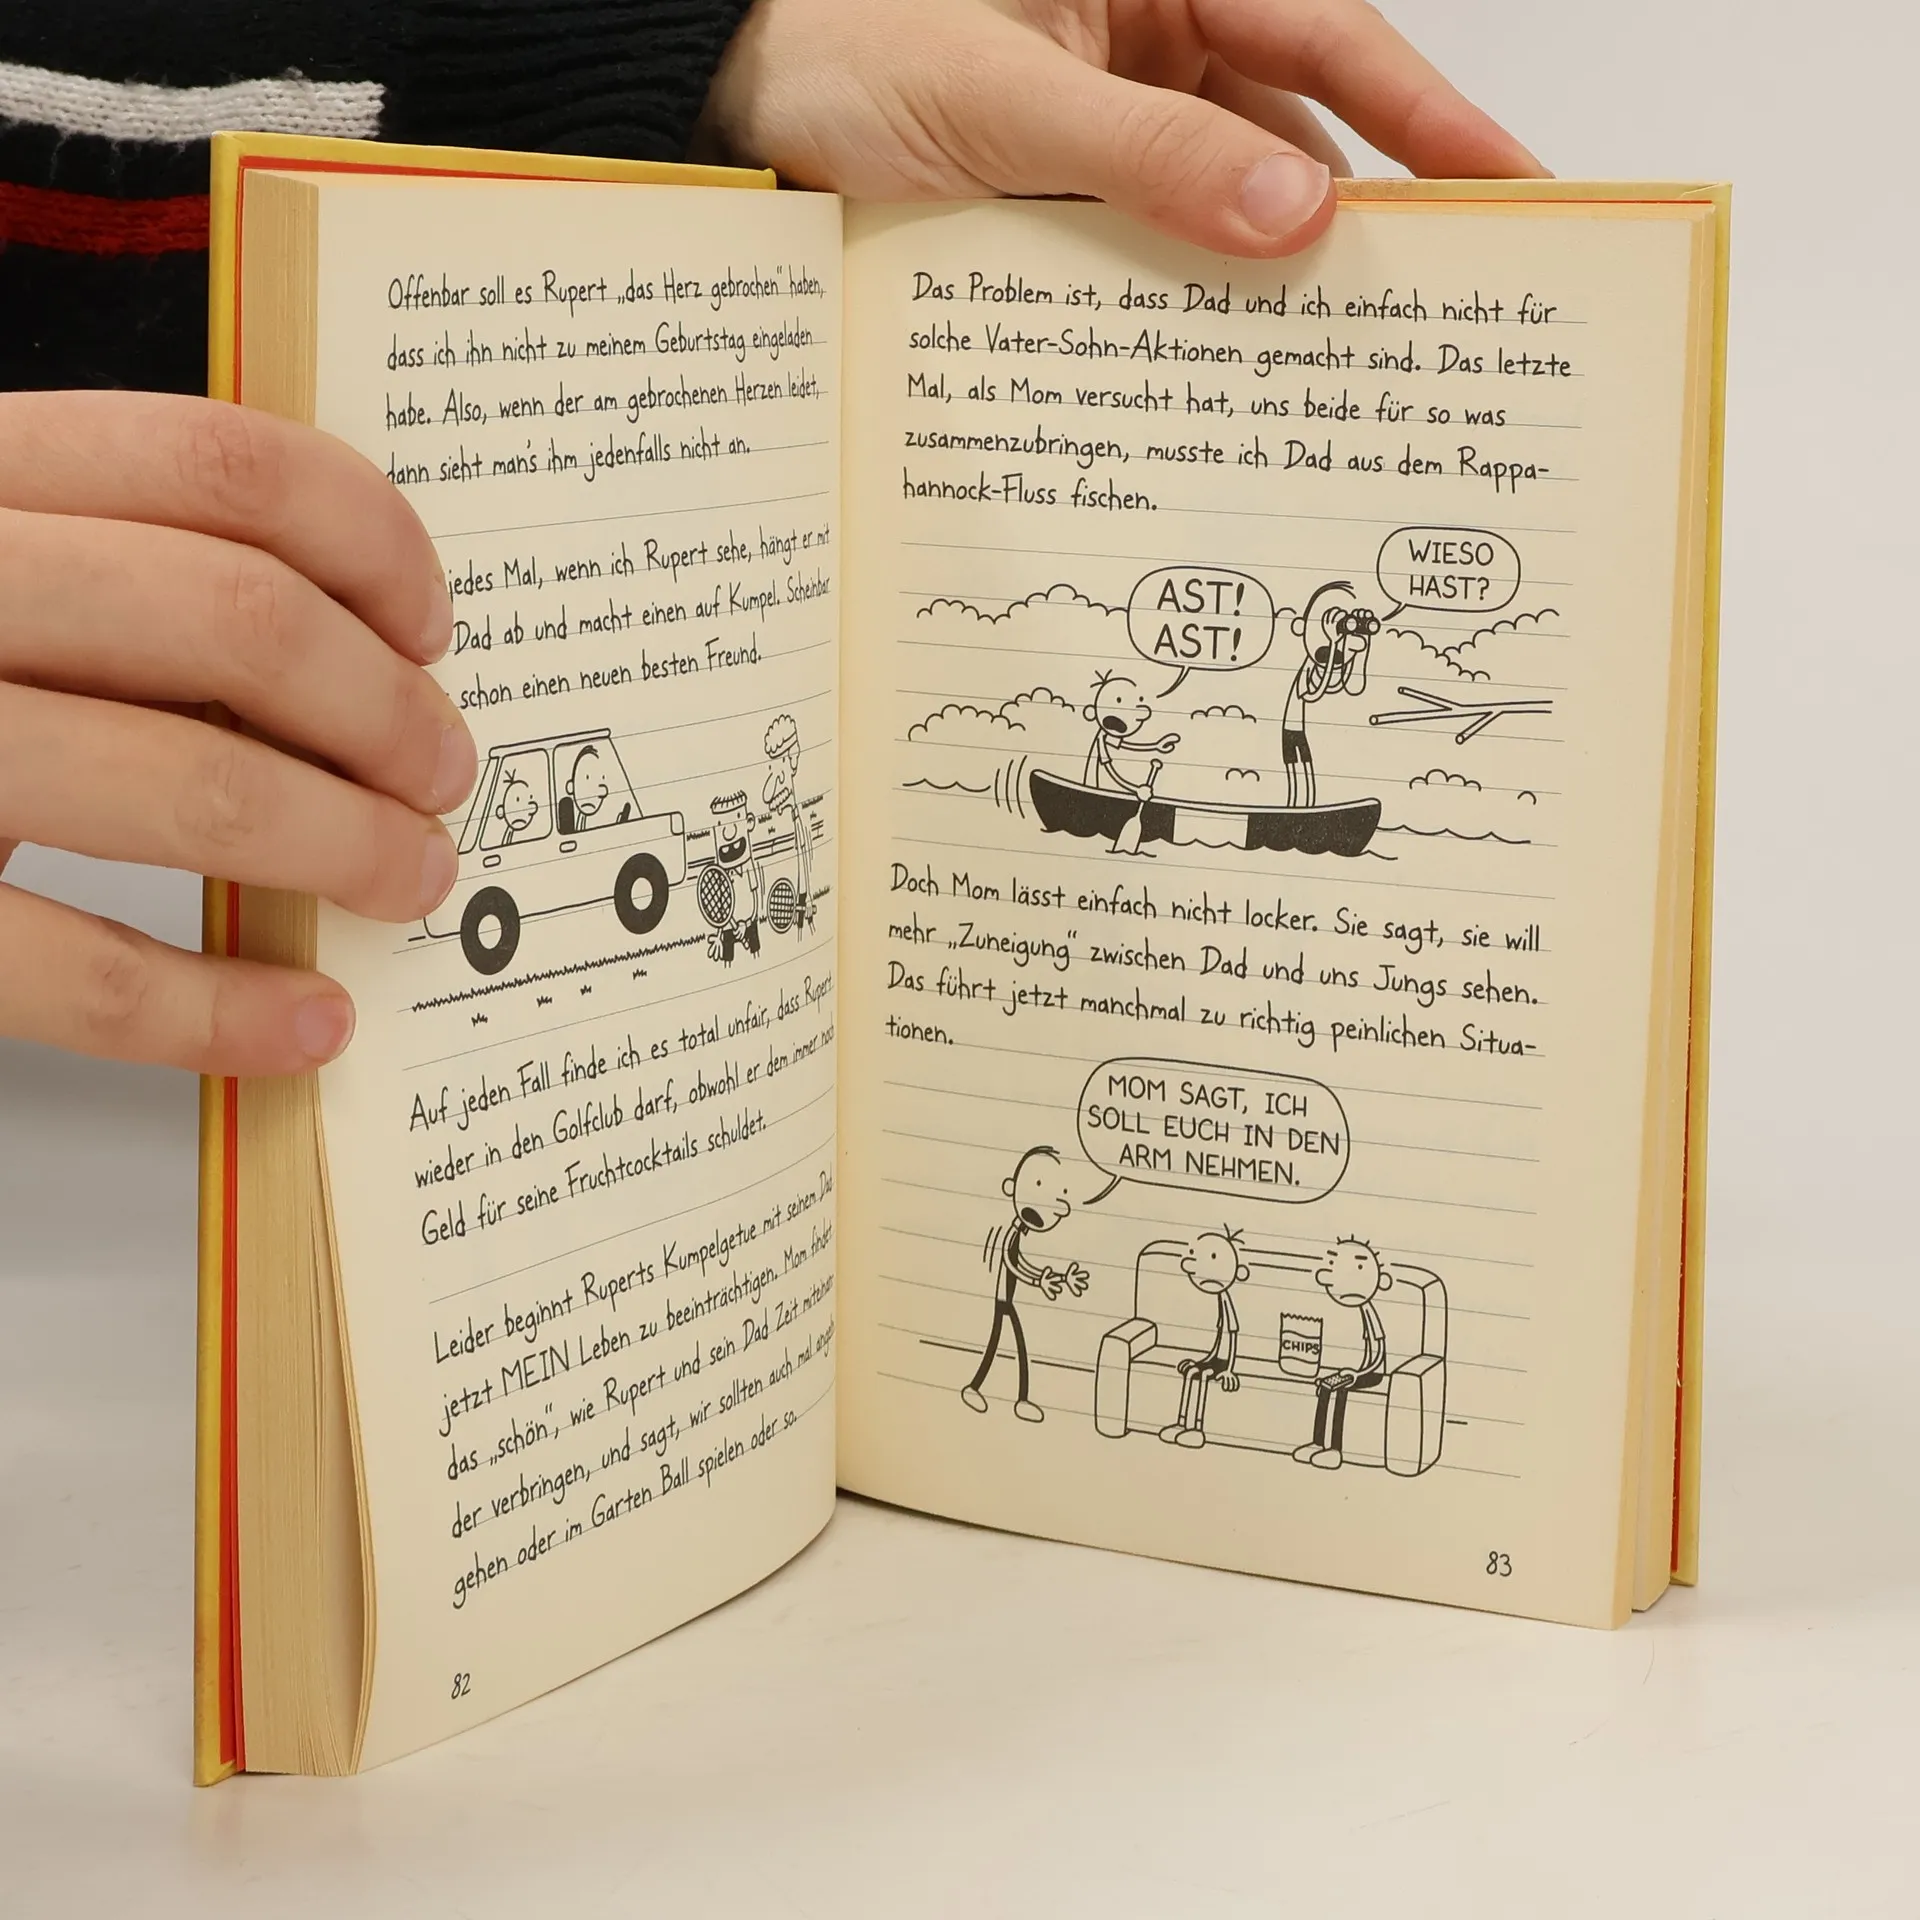 Offenbar soll es Rupert „das Herz gebrochen“ haben,
dass ich ihn nicht zu meinem Geburtstag eingeladen
habe. Also, wenn der am gebrochenen Herzen leidet,
dann sieht man's ihm jedenfalls nicht an.
jedes Mal, wenn ich Rupert sehe, hängt er mit
Dad ab und macht einen auf Kumpel. Scheinbar
schon einen neuen besten Freund.
Auf jeden Fall finde ich es total unfair, dass Rupert
wieder in den Golfclub darf, obwohl er dem immer noch
Geld für seine Fruchtcocktails schuldet.
Leider beginnt Ruperts Kumpelgetue mit seinem Dad
jetzt MEIN Leben zu beeinträchtigen. Mom findet
das „schön“, wie Rupert und sein Dad Zeit miteinan-
der verbringen, und sagt, wir sollten auch mal angeln
gehen oder im Garten Ball spielen oder so.
82
Das Problem ist, dass Dad und ich einfach nicht für
solche Vater-Sohn-Aktionen gemacht sind. Das letzte
Mal, als Mom versucht hat, uns beide für so was
zusammenzubringen, musste ich Dad aus dem Rappa-
hannock-Fluss fischen.
AST!
AST!
WIESO
HAST?
Doch Mom lässt einfach nicht locker. Sie sagt, sie will
mehr „Zuneigung“ zwischen Dad und uns Jungs sehen.
Das führt jetzt manchmal zu richtig peinlichen Situa-
tionen.
MOM SAGT, ICH
SOLL EUCH IN DEN
ARM NEHMEN.
CHIPS
83